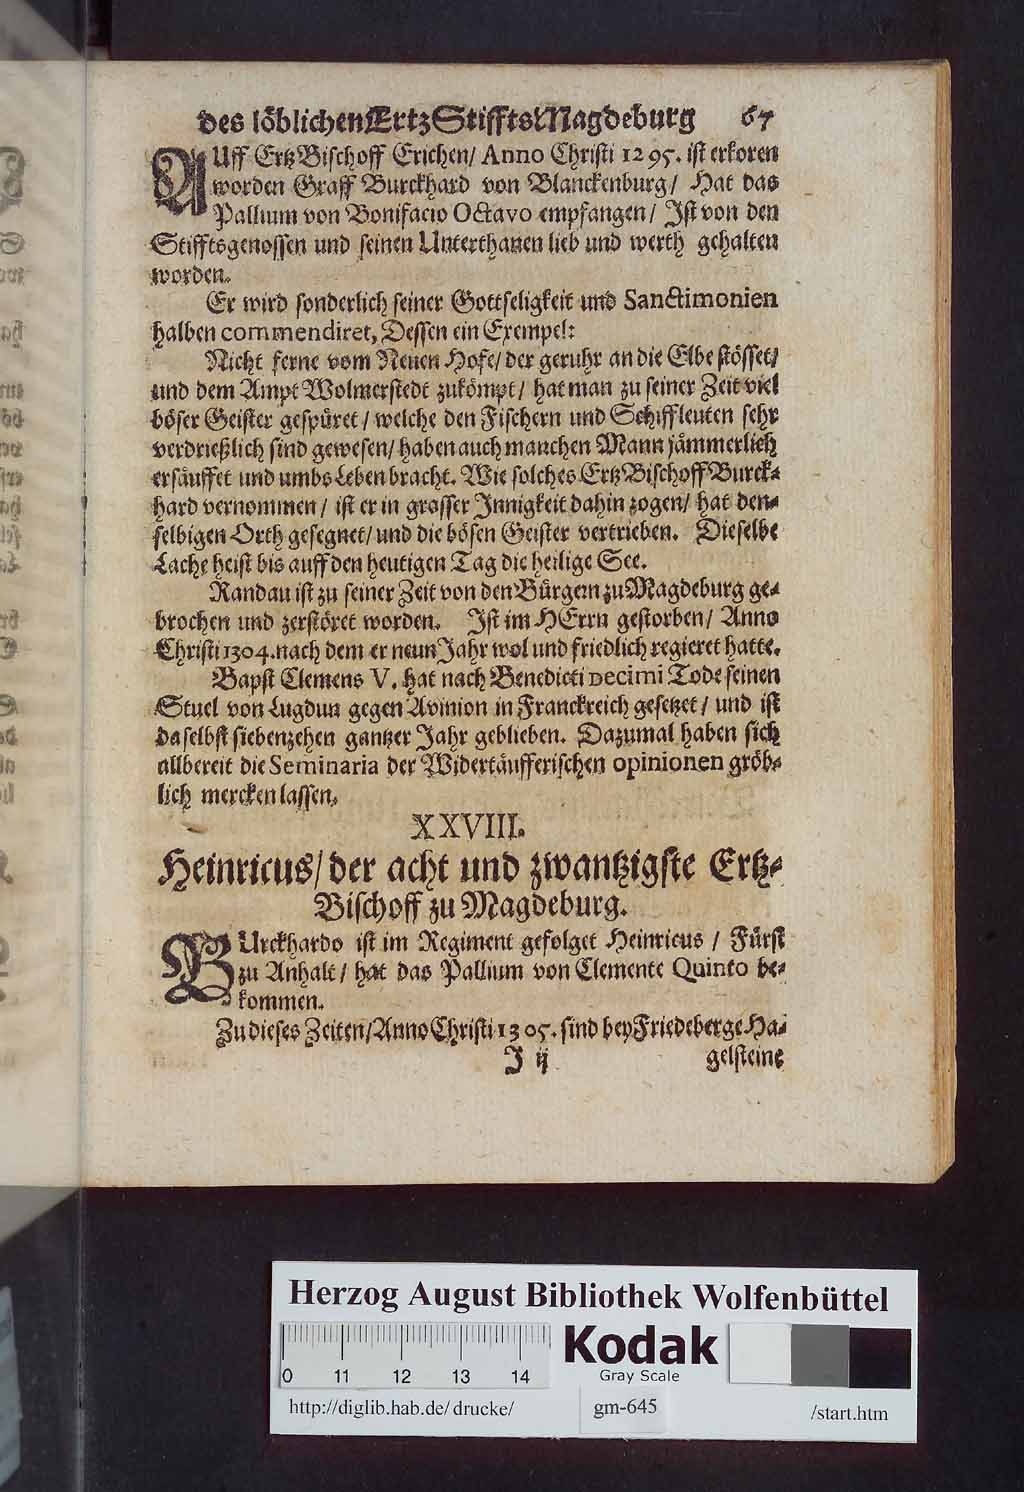 des löblichen ErtzStiffts Magdeburg 67
AUff ErtzBischoff Erichen/ Anno Christi 1295. ist erkoren
worden Graff Burckhard von Blanckenburg/ Hat das
Pallium von Bonifacio Octavo empfangen/ Jst von den
Stifftsgenossen und seinen Unterthanen lieb und werth gehalten
worden.
Er wird sonderlich seiner Gottseligkeit und Sanctimonien
halben commendiret, Dessen ein Exempel:
Nicht ferne vom Neuen Hofe/ der geruhr an die Elbe stösset/
und dem Ampt Wolmerstedt zukömpt/ hat man zu seiner Zeit viel
böser Geister gespüret/ welche den Fischern und Schiffleuten sehr
verdrießlich sind gewesen/ haben auch manchen Mann jämmerlich
ersäuffet und umbs Leben bracht. Wie solches ErtzBischoff Burck-
hard vernommen/ ist er in grosser Jnnigkeit dahin zogen/ hat den-
selbigen Orth gesegnet/ und die bösen Geister vertrieben. Dieselbe
Lache heist bis auff den heutigen Tag die heilige See.
Randau ist zu seiner Zeit von den Bürgern zu Magdeburg ge-
brochen und zerstöret worden. Jst im HErrn gestorben/ Anno
Christi 1304. nach dem er neun Jahr wol und friedlich regieret hatte.
Bapst Clemens V. hat nach Benedicti Decimi Tode seinen
Stuel von Lugdun gegen Avinion in Franckreich gesetzet/ und ist
daselbst siebenzehen gantzer Jahr geblieben. Dazumal haben sich
allbereit die Seminaria der Widertäufferischen opinionen gröb-
lich mercken lassen.
XXVIII.
Heinricus/ der acht und zwantzigste Ertz-
Bischoff zu Magdeburg.
BUrckhardo ist im Regiment gefolget Heinricus/ Fürst
zu Anhalt/ hat das Pallium von Clemente Quinto be-
kommen.
Zu dieses Zeiten/ Anno Christi 1305. sind bey Friedeberge Ha-
J ij gelsteine
Herzog August Bibliothek Wolfenbüttel
Kodak
Gray Scale
0 11 12 13 14
http://diglib.hab.de/drucke/ gm-645 /start.htm